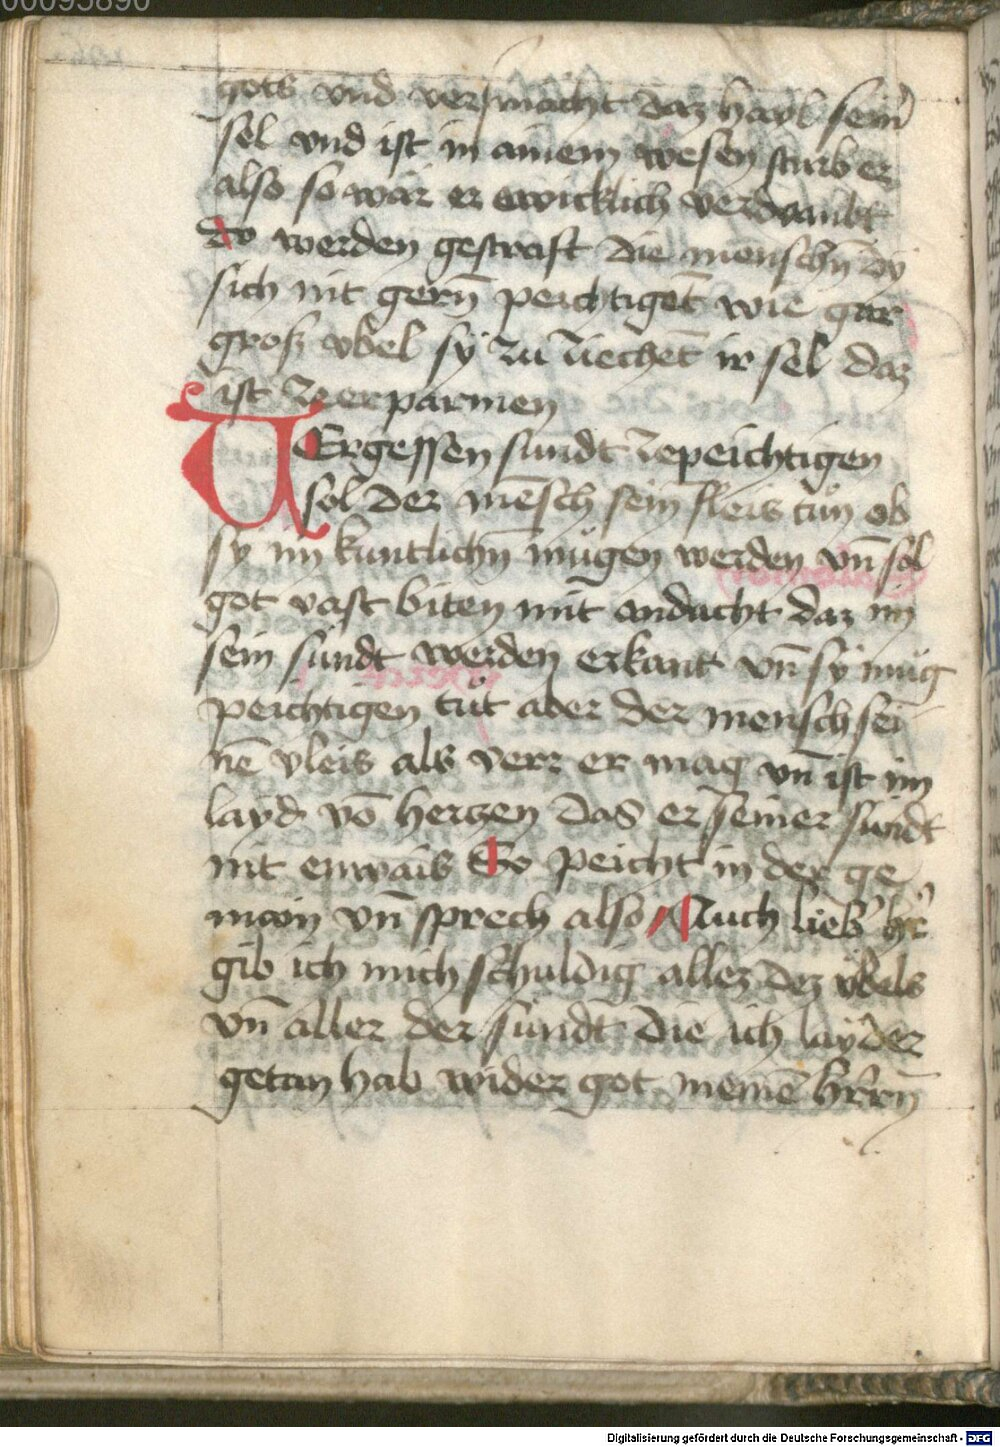 00095890
gots vnd versmacht daz hayl sein̄
sel vnd ist in ainem wesen sturb er
also so wär er ewicklich verdambt
do werden gestraft die menschn̄ dy
sich nit gern̄ peichtigēt wie gar
gross vbel sy zu ziechēt ir sel daz
ist zeerparmen
VErgessen sundt zepeichtigen
sol der mēsch sein fleis tun ob
sy im kuntlichn̄ mugen werden vn̄ sol
got vast biten mit andacht daz im
sein sündt werden erkant vn̄ sy müg
peichtigen tut aber der mensch sei
nē vleis als verr er mag vn̄ ist im
layd vō herczen das er seiner sündt
nit enwais So peicht in der ge
main vn̄ sprech also Auch lieb' h'r
gib ich mich schuldig allez dez vbels
vn̄ aller der sündt die ich layder
getan hab wider got meinē hrr̄n
Digitalisierung gefördert durch die Deutsche Forschungsgemeinschaft - DFG